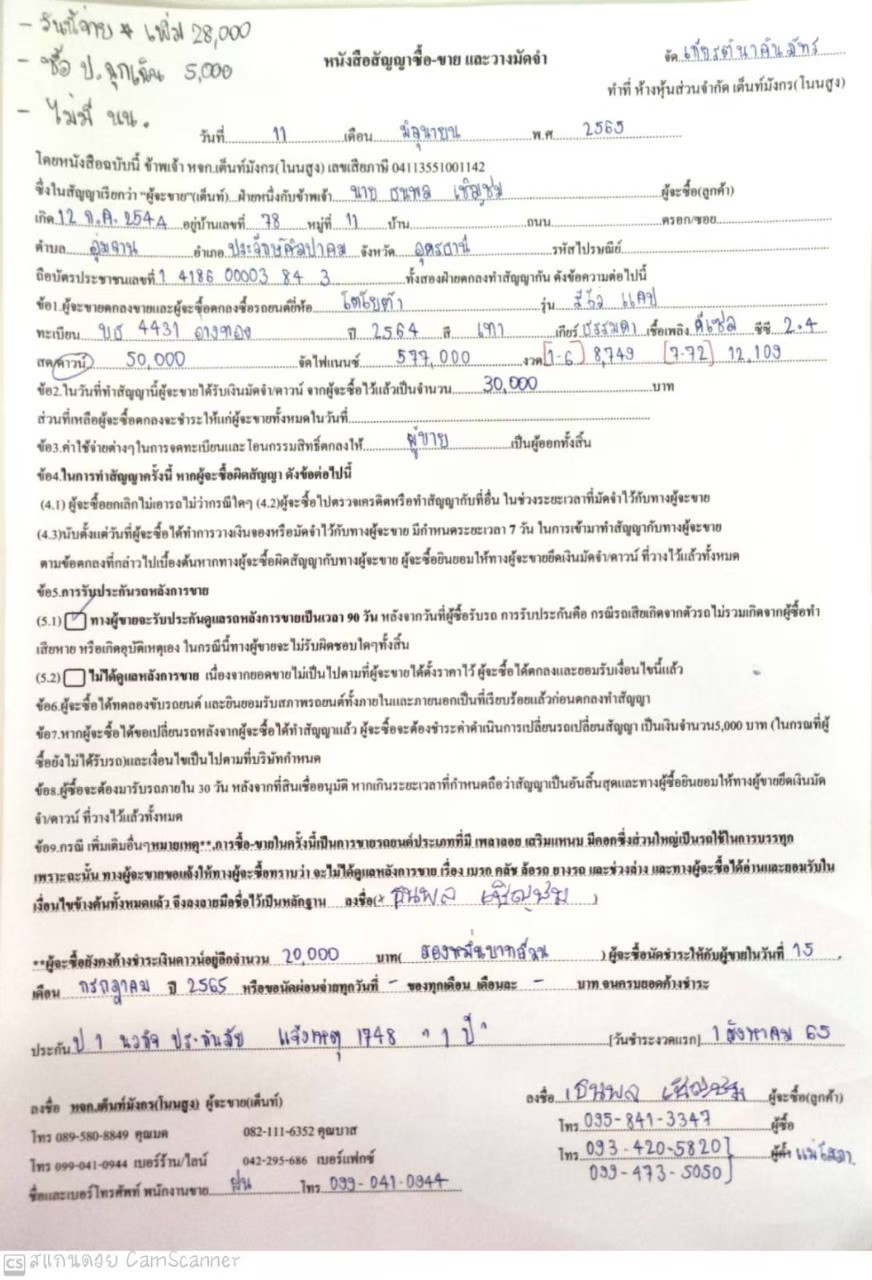 - วันนี้จ่าย * เพิ่ม 28,000
- ซื้อ ป. ฉุกเฉิน 5,000
- ไม่มี นน.
หนังสือสัญญาซื้อ-ขาย และวางมัดจำ
จัด เกียรตินาคินภัทร
ทำที่ ห้างหุ้นส่วนจำกัด เต็นท์มังกร(โนนสูง)
วันที่ 11 เดือน มิถุนายน พ.ศ. 2565
โดยหนังสือฉบับนี้ ข้าพเจ้า หจก.เต็นท์มังกร(โนนสูง) เลขเสียภาษี 04113551001142
ซึ่งในสัญญาเรียกว่า "ผู้จะขาย"(เต็นท์)...ฝ่ายหนึ่งกับข้าพเจ้า นาย ธนพล เชิญชม ผู้จะซื้อ(ลูกค้า)
เกิด 12 ก.ค. 2544 อยู่บ้านเลขที่ 78 หมู่ที่ 11 บ้าน ถนน ตรอก/ซอย
ตำบล อุ่มจาน อำเภอ ประจักษ์ศิลปาคม จังหวัด อุดรธานี รหัสไปรษณีย์
ถือบัตรประชาชนเลขที่ 1 4186 00003 84 3 ทั้งสองฝ่ายตกลงทำสัญญากัน ดังข้อความต่อไปนี้
ข้อ1.ผู้จะขายตกลงขายและผู้จะซื้อตกลงซื้อรถยนต์ยี่ห้อ โตโยต้า รุ่น รีโว่ แคป
ทะเบียน บธ 4431 อ่างทอง ปี 2564 สี เทา เกียร์ ธรรมดา เชื้อเพลิง ดีเซล ซีซี 2.4
สด/ดาวน์ 50,000 จัดไฟแนนซ์ 577,000 งวด [1-6] 8,749 [7-72] 12,109
ข้อ2.ในวันที่ทำสัญญานี้ผู้จะขายได้รับเงินมัดจำ/ดาวน์ จากผู้จะซื้อไว้แล้วเป็นจำนวน 30,000 บาท
ส่วนที่เหลือผู้จะซื้อตกลงจะชำระให้แก่ผู้จะขายทั้งหมดในวันที่
ข้อ3.ค่าใช้จ่ายต่างๆในการจดทะเบียนและโอนกรรมสิทธิ์ตกลงให้ ผู้ขาย เป็นผู้ออกทั้งสิ้น
ข้อ4.ในการทำสัญญาครั้งนี้ หากผู้จะซื้อผิดสัญญา ดังข้อต่อไปนี้
(4.1) ผู้จะซื้อยกเลิกไม่เอารถไม่ว่ากรณีใดๆ (4.2)ผู้จะซื้อไปตรวจเครดิตหรือทำสัญญากับที่อื่น ในช่วงระยะเวลาที่มัดจำไว้กับทางผู้จะขาย
(4.3)นับตั้งแต่วันที่ผู้จะซื้อได้ทำการวางเงินจองหรือมัดจำไว้กับทางผู้จะขาย มีกำหนดระยะเวลา 7 วัน ในการเข้ามาทำสัญญากับทางผู้จะขาย
ตามข้อตกลงที่กล่าวไปเบื้องต้นหากทางผู้จะซื้อผิดสัญญากับทางผู้จะขาย ผู้จะซื้อยินยอมให้ทางผู้จะขายยึดเงินมัดจำ/ดาวน์ ที่วางไว้แล้วทั้งหมด
ข้อ5.การรับประกันรถหลังการขาย
(5.1) ทางผู้ขายจะรับประกันดูแลรถหลังการขายเป็นเวลา 90 วัน หลังจากวันที่ผู้ซื้อรับรถ การรับประกันคือ กรณีรถเสียเกิดจากตัวรถไม่รวมเกิดจากผู้ซื้อทำ
เสียหาย หรือเกิดอุบัติเหตุเอง ในกรณีนี้ทางผู้ขายจะไม่รับผิดชอบใดๆทั้งสิ้น
(5.2) ไม่ได้ดูแลหลังการขาย เนื่องจากยอดขายไม่เป็นไปตามที่ผู้จะขายได้ตั้งราคาไว้ ผู้จะซื้อได้ตกลงและยอมรับเงื่อนไขนี้แล้ว
ข้อ6.ผู้จะซื้อได้ทดลองขับรถยนต์ และยินยอมรับสภาพรถยนต์ทั้งภายในและภายนอกเป็นที่เรียบร้อยแล้วก่อนตกลงทำสัญญา
ข้อ7.หากผู้จะซื้อได้ขอเปลี่ยนรถหลังจากผู้จะซื้อได้ทำสัญญาแล้ว ผู้จะซื้อจะต้องชำระค่าดำเนินการเปลี่ยนรถเปลี่ยนสัญญา เป็นเงินจำนวน5,000 บาท (ในกรณที่ผู้
ซื้อยังไม่ได้รับรถ)และเงื่อนไขเป็นไปตามที่บริษัทกำหนด
ข้อ8.ผู้ซื้อจะต้องมารับรถภายใน 30 วัน หลังจากที่สินเชื่ออนุมัติ หากเกินระยะเวลาที่กำหนดถือว่าสัญญาเป็นอันสิ้นสุดและทางผู้ซื้อยินยอมให้ทางผู้ขายยึดเงินมัด
จำ/ดาวน์ ที่วางไว้แล้วทั้งหมด
ข้อ9.กรณี เพิ่มเติมอื่นๆหมายเหตุ**.การซื้อ-ขายในครั้งนี้เป็นการขายรถยนต์ประเภทที่มี เพลาลอย เสริมแหนบ มีคอกซึ่งส่วนใหญ่เป็นรถใช้ในการบรรทุก
เพราะฉะนั้น ทางผู้จะขายขอแจ้งให้ทางผู้จะซื้อทราบว่า จะไม่ได้ดูแลหลังการขาย เรื่อง เบรก คลัช ล้อรถ ยางรถ และช่วงล่าง และทางผู้จะซื้อได้อ่านและยอมรับใน
เงื่อนไขข้างต้นทั้งหมดแล้ว จึงลงลายมือชื่อไว้เป็นหลักฐาน ลงชื่อ(x ธนพล เชิญชม )
**ผู้จะซื้อยังคงค้างชำระเงินดาวน์อยู่อีกจำนวน 20,000 บาท( สองหมื่นบาทถ้วน ) ผู้จะซื้อนัดชำระให้กับผู้ขายในวันที่ 15
เดือน กรกฎาคม ปี 2565 หรือขอนัดผ่อนจ่ายทุกวันที่ - ของทุกเดือน เดือนละ - บาท จนครบยอดค้างชำระ
ประกัน ป 1 นวกิจ ประกันภัย แจ้งเหตุ 1748 " 1 ปี " [วันชำระงวดแรก] 1 สิงหาคม 65
ลงชื่อ หจก.เต็นท์มังกร(โนนสูง) ผู้จะขาย(เต็นท์)
ลงชื่อ ธนพล เชิญชม ผู้จะซื้อ(ลูกค้า)
โทร 089-580-8849 คุณมด 082-111-6352 คุณบาส
โทร 095-841-3347 ผู้ซื้อ
โทร 099-041-0944 เบอร์ร้าน/ไลน์ 042-295-686 เบอร์แฟกซ์
โทร 093-420-5820 ผู้ค้ำ
099-473-5050
ชื่อและเบอร์โทรศัพท์ พนักงานขาย ฝน โทร 099-041-0944
CS สแกนด้วย CamScanner